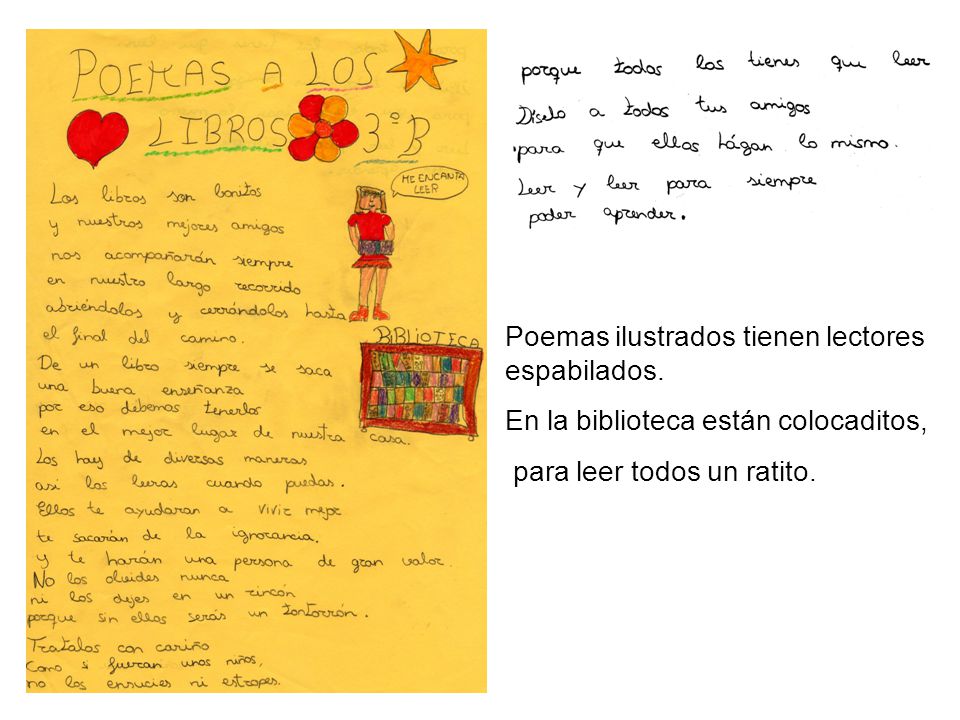 POEMAS A LOS
LIBROS 3ºB
ME ENCANTA
LEER
Los libros son bonitos
y nuestros mejores amigos
nos acompañarán siempre
en nuestro largo recorrido
abriéndolos y cerrándolos hasta
el final del camino.
BIBLIOTECA
De un libro siempre se saca
una buena enseñanza
por eso debemos tenerlos
en el mejor lugar de nuestra casa.
Los hay de diversas maneras
asi los leeras cuando puedas.
Ellos te ayudaran a vivir mejor
te sacarán de la ignorancia.
y te harán una persona de gran valor.
No los olvides nunca
ni los dejes en un rincón
porque sin ellos serás un tontorrón.
Tratalos con cariño
Como si fueran unos niños,
no los ensucies ni estropes.
porque todos los tienes que leer
Díselo a todos tus amigos
para que ellos hágan lo mismo.
Leer y leer para siempre
poder aprender.
Poemas ilustrados tienen lectores
espabilados.
En la biblioteca están colocaditos,
para leer todos un ratito.